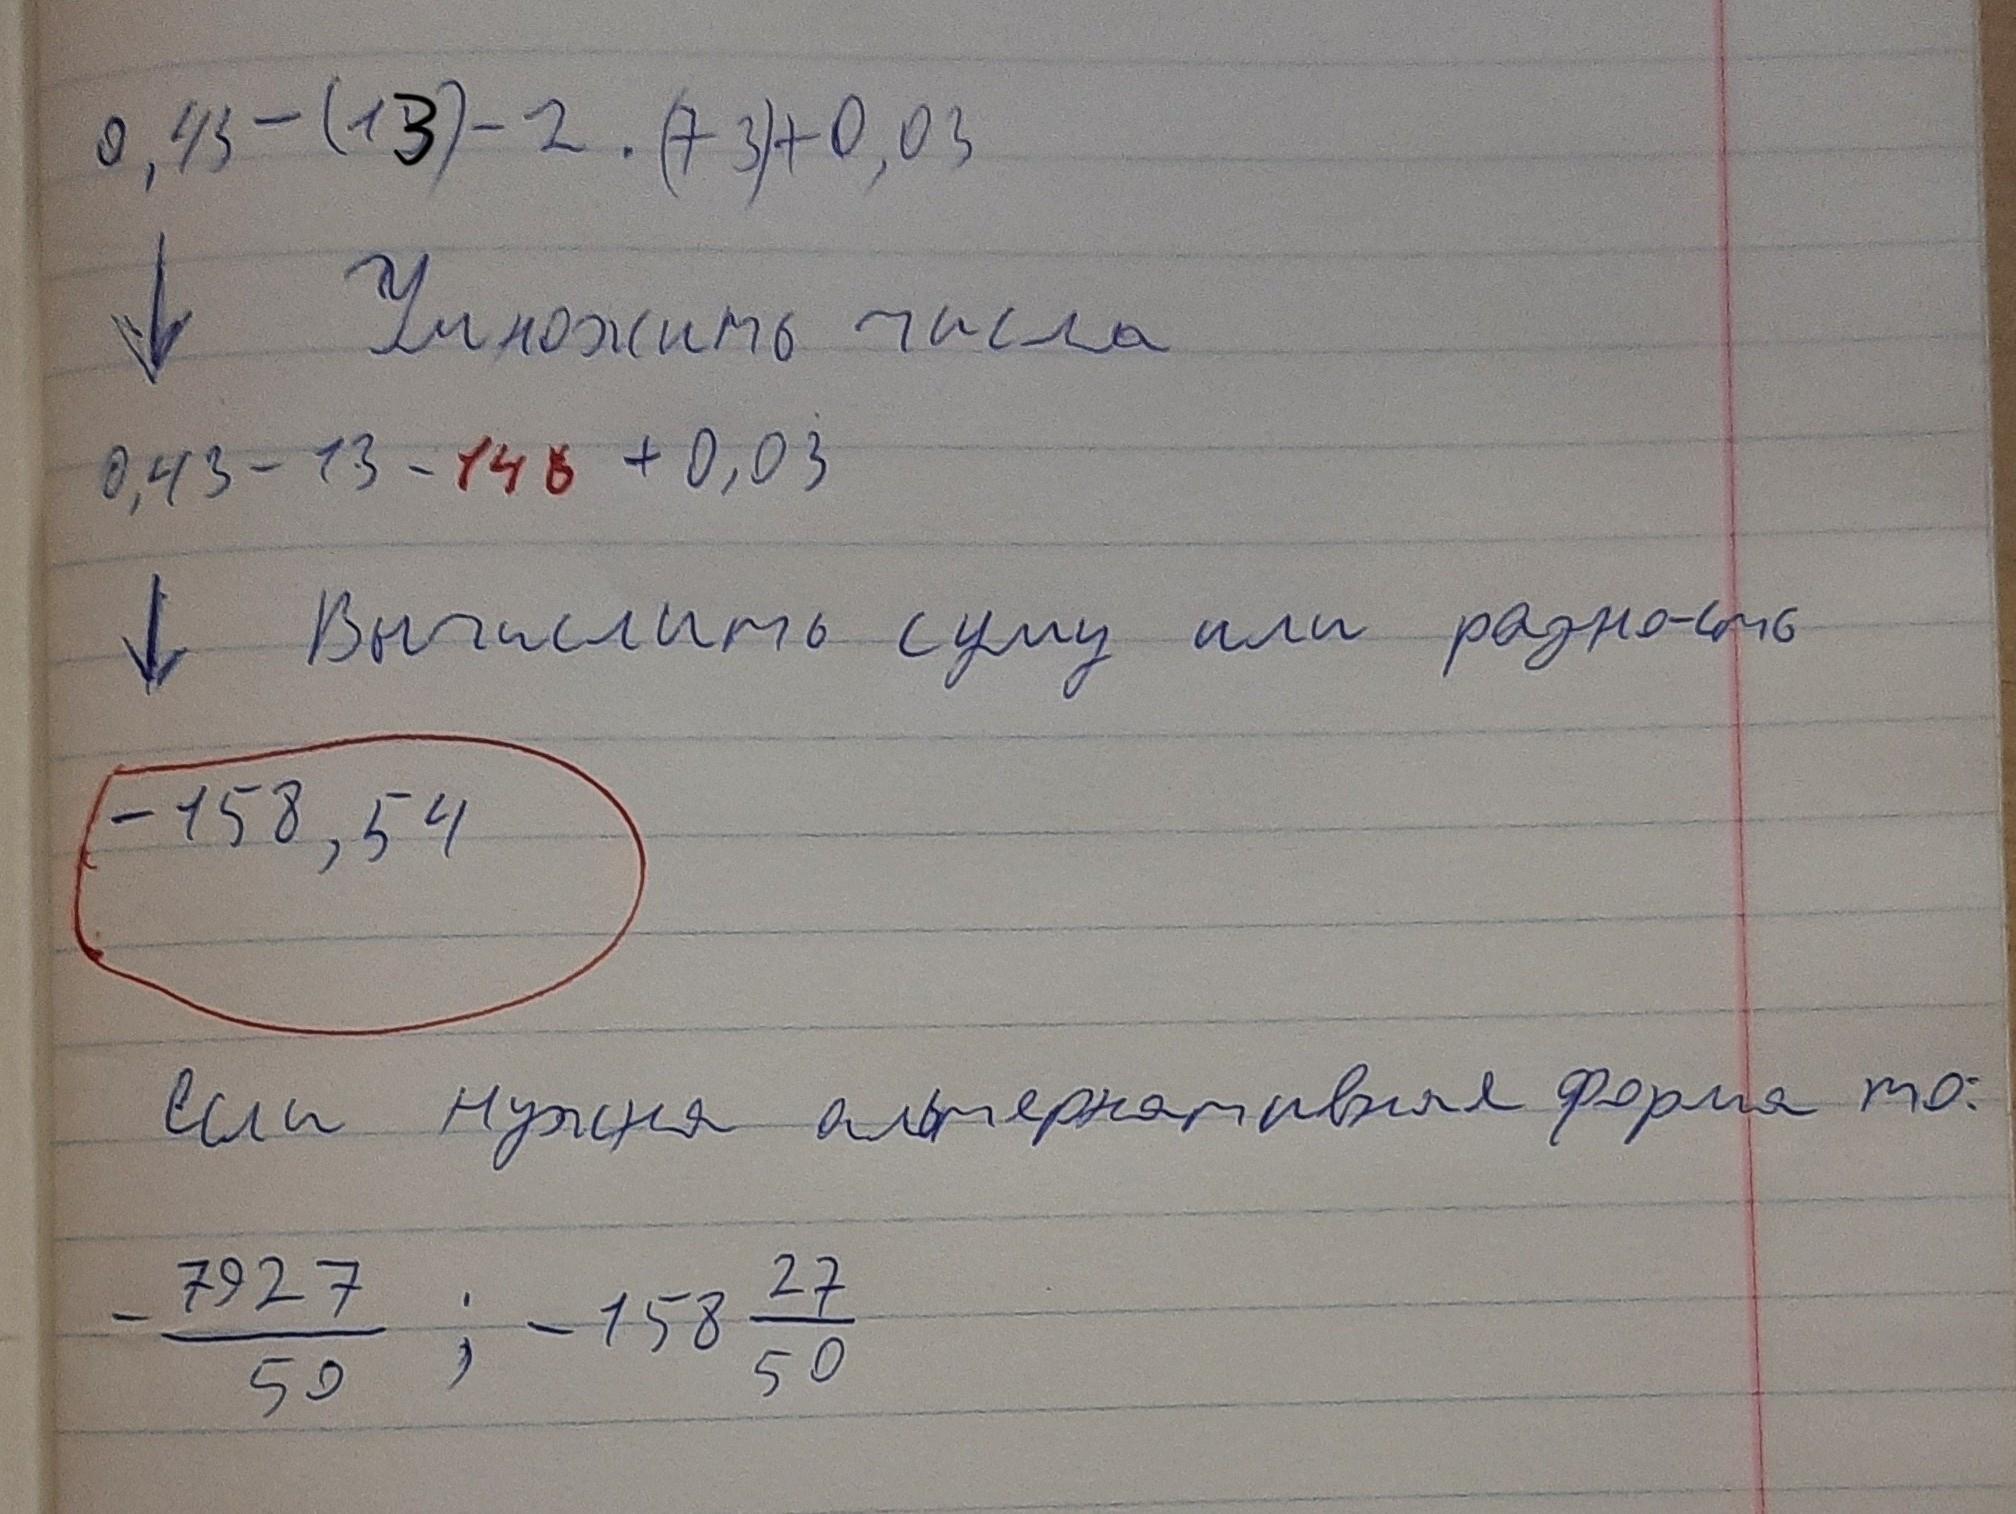 0,43-(13)-2·(73)+0,03
Умножить числа
0,43-13-146+0,03
Вычислить суму или разность
-158,54
Если нужна альтернативная форма то:
-7927/50 ; -158 27/50